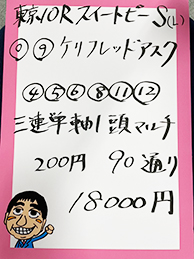 東京10R スイートピーS(L)
◎⑨ケリフレッドアスク
④⑤⑥⑧⑪⑫
三連単軸1頭マルチ
200円 90通り
18000円